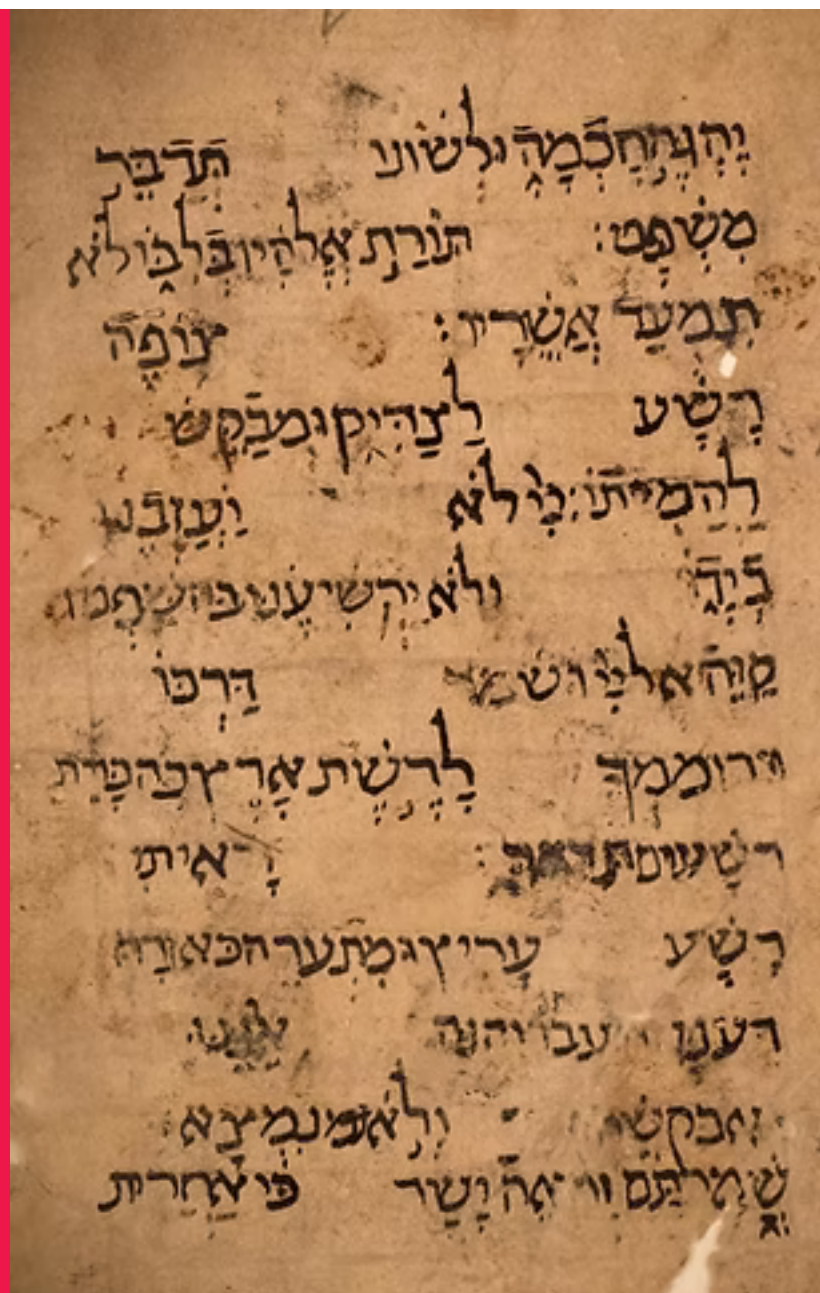 יֶהְגֶּה חָכְמָה וּלְשׁוֹנוֹ תְּדַבֵּר
מִשְׁפָּט: תּוֹרַת אֱלֹהָיו בְּלִבּוֹ לֹא
תִמְעַד אֲשֻׁרָיו: צוֹפֶה
רָשָׁע לַצַּדִּיק וּמְבַקֵּשׁ
לַהֲמִיתוֹ: יְיָ לֹא יַעַזְבֶנּוּ
ולֹא יַרְשִׁיעֶנּוּ בהשָּׁפְטוֹ
קַוֵּה אל יְיָ ושמר דַּרְכּוֹ
וירוממְךָ לָרֶשֶׁת אָרֶץ בְּהִכָּרֵת
רשָׁעים רָאִיתִי
רָשָׁע עָרִיץ וּמִתְעָרֶה כאזרָח
רַעֲנָן
וְלֹא נִמְצָא
שְׁמָר תָּם וּרְאֵה יָשָׁר כִּי אַחֲרִית